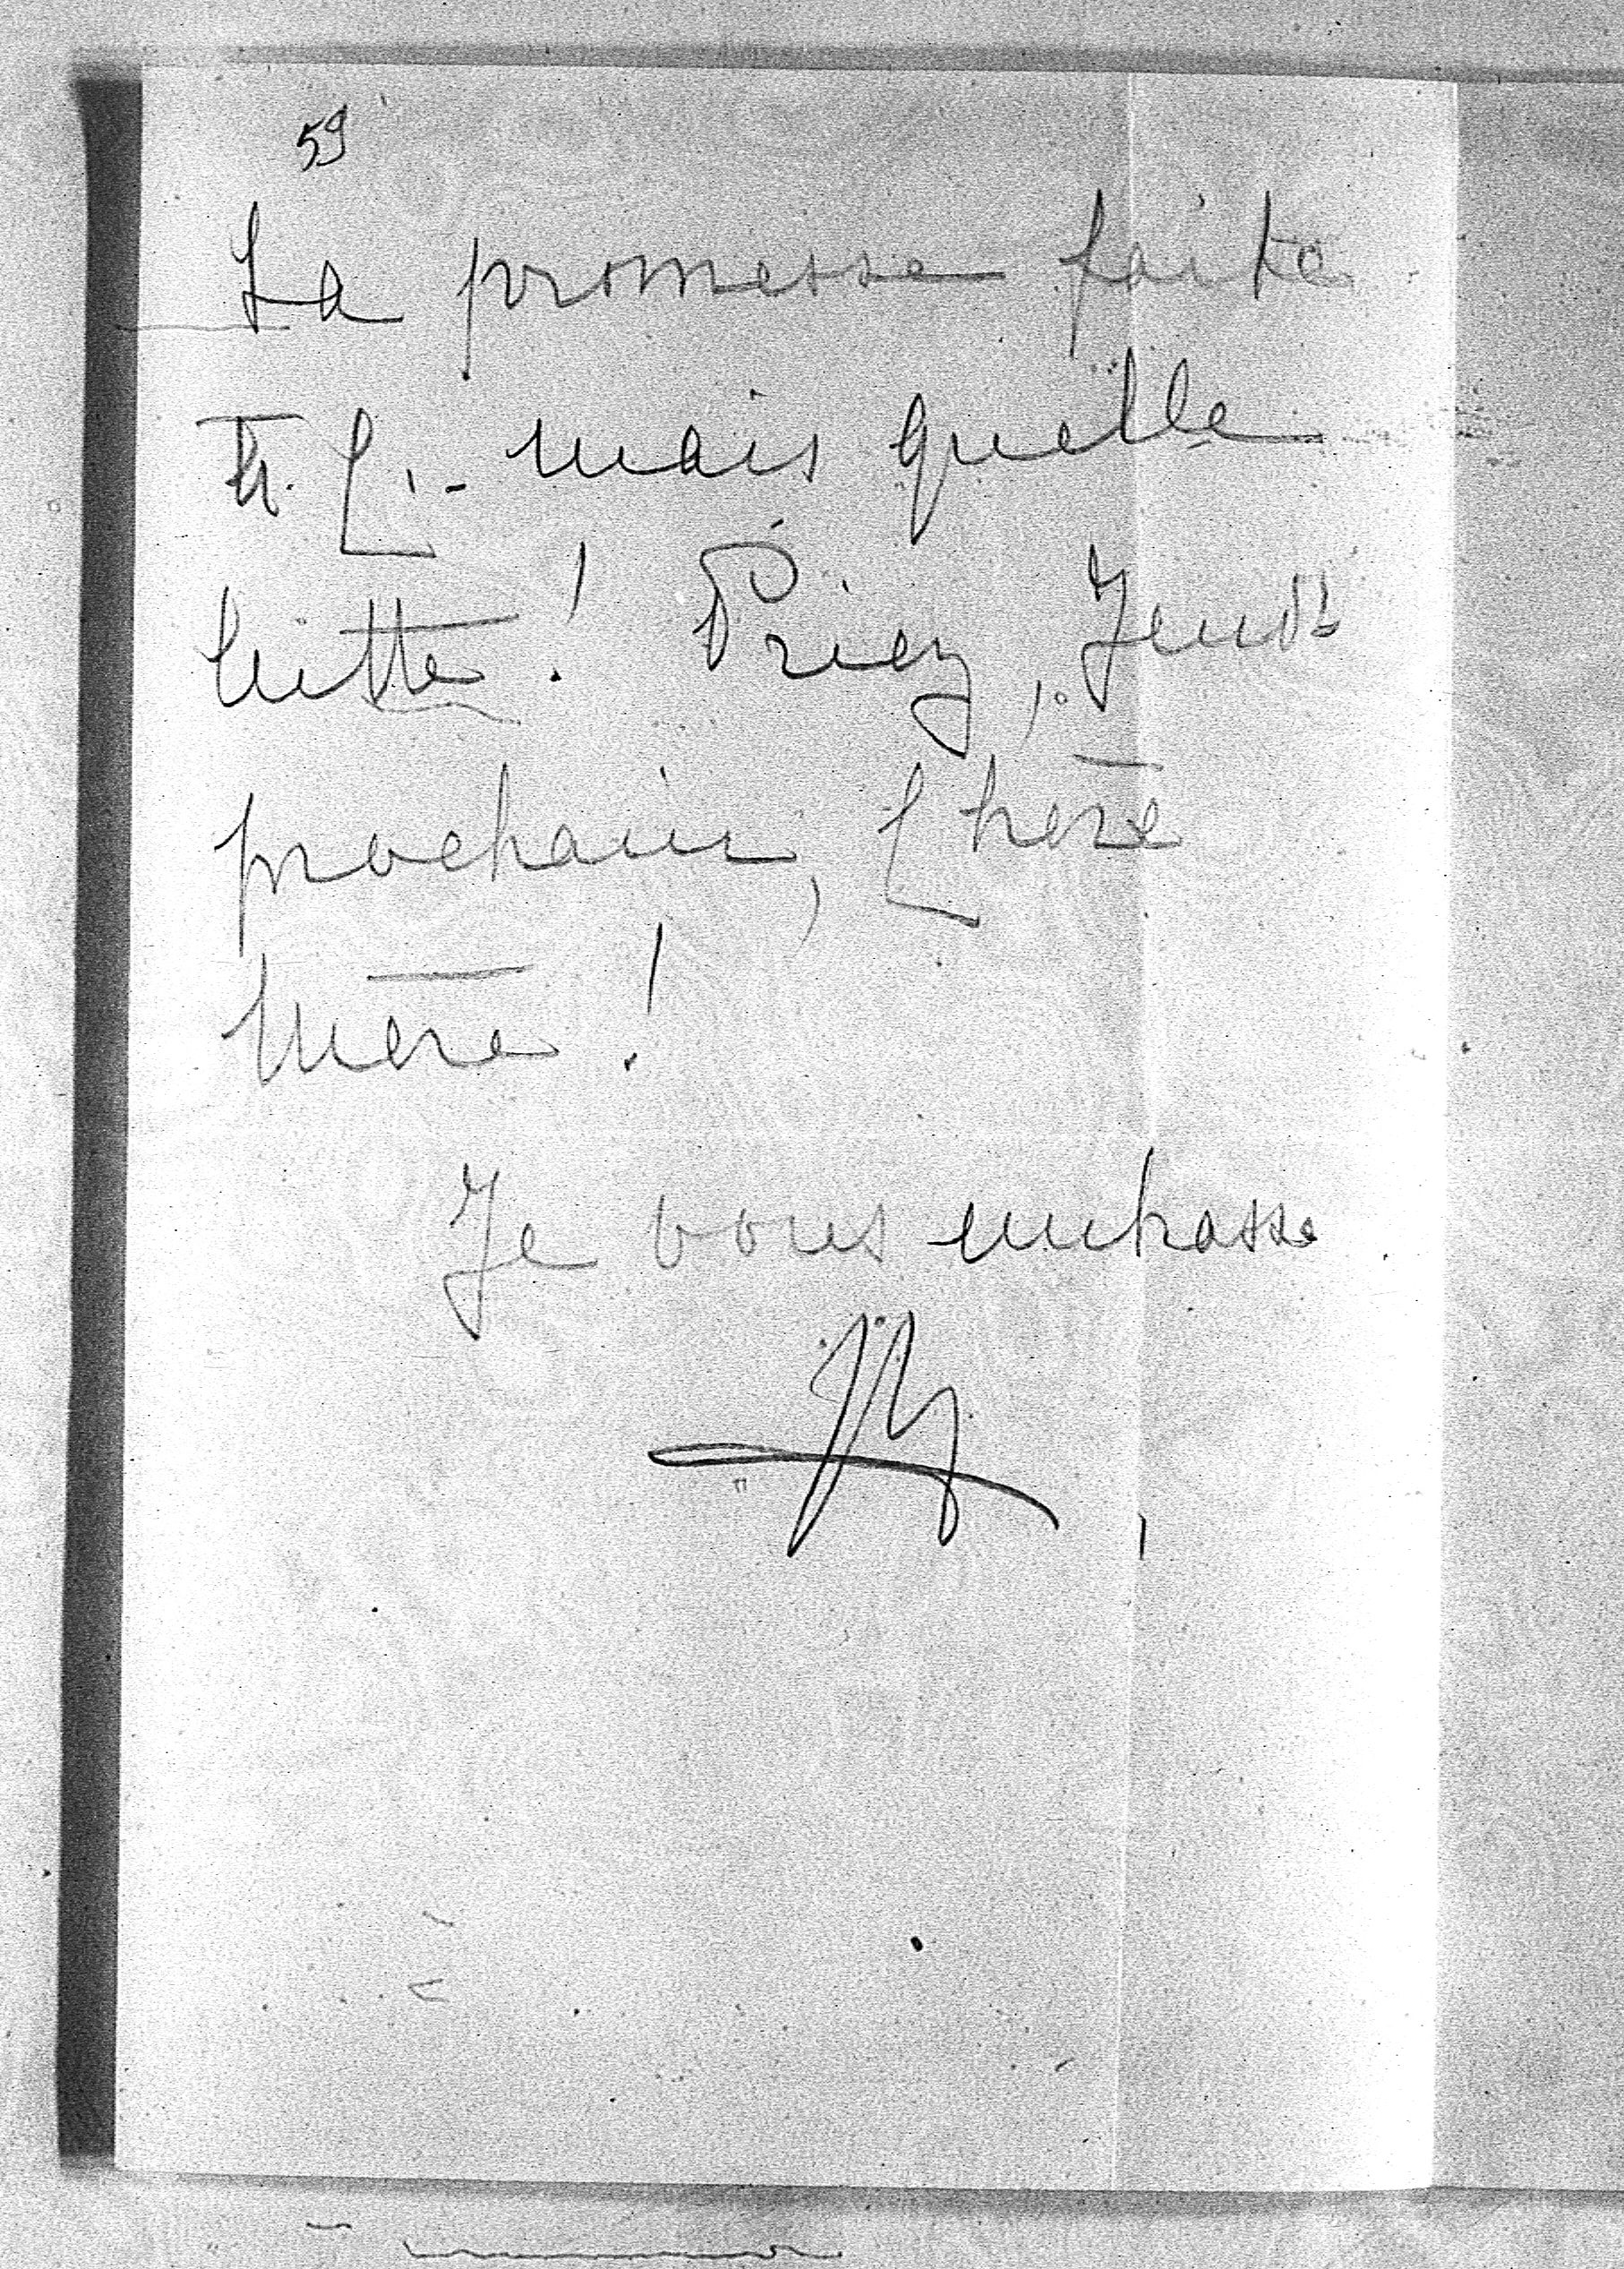 59
La promesse faite
Fr. C. - mais quelle
lutte ! Priez, Jeudi
prochain, Chère
Mère !
Je vous embrasse